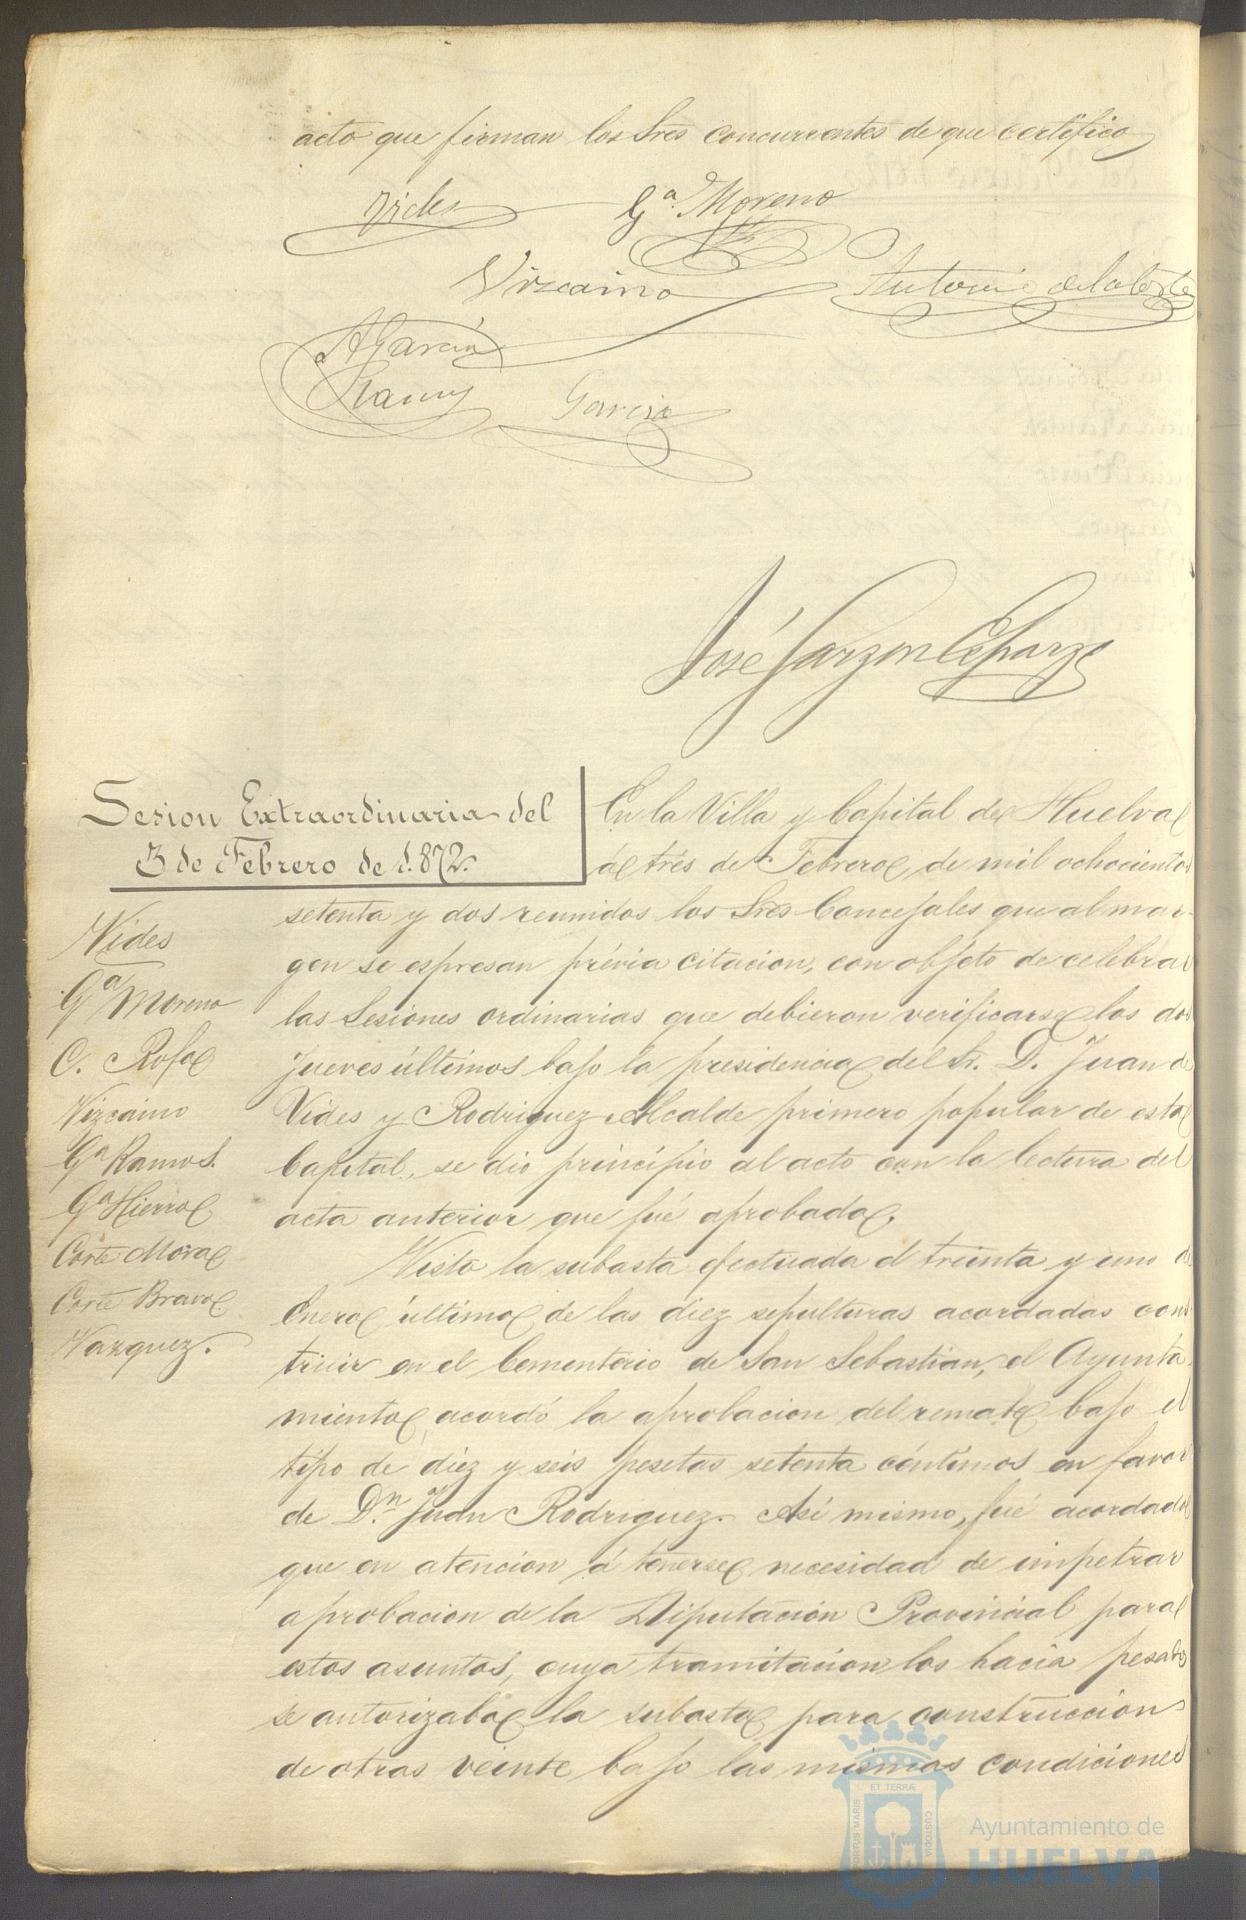 acto que firman los Sres concurrentes de que certifico
Vides
Gª Moreno
Vizcaino
Antonio de la Corte
A Garcia
Ramos
Garcia
José Garzon Esparza
Sesion Extraordinaria del
3 de Febrero de 1.872.
Vides
Gª Moreno
C. Rofa
Vizcaino
Gª Ramos.
Gª Hierro
Corte Mora
Corte Bravo
Vazquez.
En la Villa y Capital de Huelva
á tres de Febrero de mil ochocientos
setenta y dos reunidos los Sres Concejales que al mar-
gen se espresan prévia citacion, con objeto de celebrar
las Sesiones ordinarias que debieron verificarse los dos
jueves últimos bajo la presidencia del Sr. D. Juan de
Vides y Rodriguez Alcalde primero popular de esta
Capital, se dió principio al acto con la lectura del
acta anterior que fué aprobada.
Vista la subasta efectuada el treinta y uno de
Enero último de las diez sepulturas acordadas cons-
truir en el Cementerio de San Sebastian, el Ayunta-
miento acordó la aprobacion del remate bajo el
tipo de diez y seis pesetas setenta céntimos en favor
de Dn. Juan Rodriguez. Asi mismo, fué acordado
que en atencion á tenerse necesidad de impetrar
aprobacion de la Diputacion Provincial para
estos asuntos, cuya tramitacion los hacia pesados
se autorizaba la subasta para construccion
de otras veinte bajo las mismas condiciones
ET TERRÆ
PORTUS MARIS
CUSTODIA
Ayuntamiento de
HUELVA